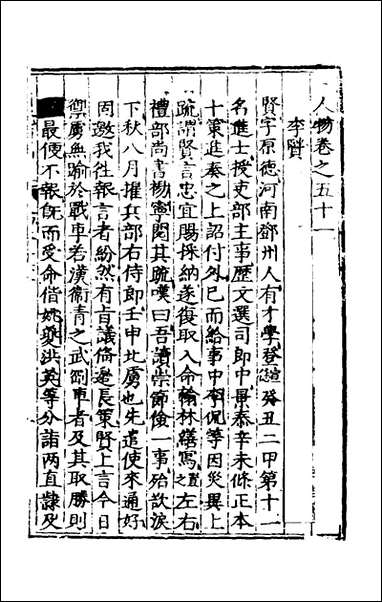 人物卷之五十一
李賢
賢字原德河南鄧州人有才學登宣德癸丑二甲第十一
名進士授吏部主事歷文選司郎中景泰辛未條正本
十策進奏之上詔付外已而給事中李侃等因災異上
疏謂賢言忠宜賜採納遂復取入命翰林繕寫置左右
禮部尚書楊寧閱其疏嘆曰吾讀崇節儉一事殆欲淚
下秋八月擢兵部右侍郎壬申北虜也先遣使來通好
因邀我往報言者紛然有旨議脩邊長策賢上言今日
禦虜無踰於戰車若漢衛青之武剛車者及其取勝則
最便不報既而受命偕姚夔洪英等分詣兩直隸及